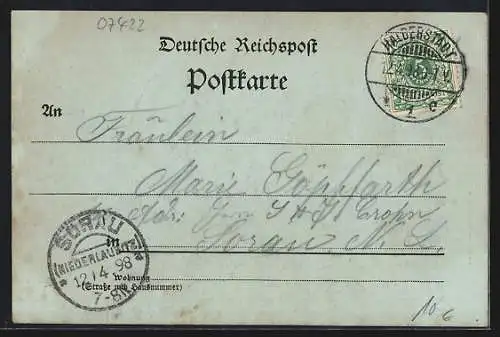 07422
Deutsche Reichspost
Postkarte
HALBERSTADT
An
Fräulein
Marie Göpfarth
Adr:
Sorau N. L.
in
SORAU
(NIEDERLAUSITZ)
12/4 98
7-8N
Wohnung
(Straße und Hausnummer)